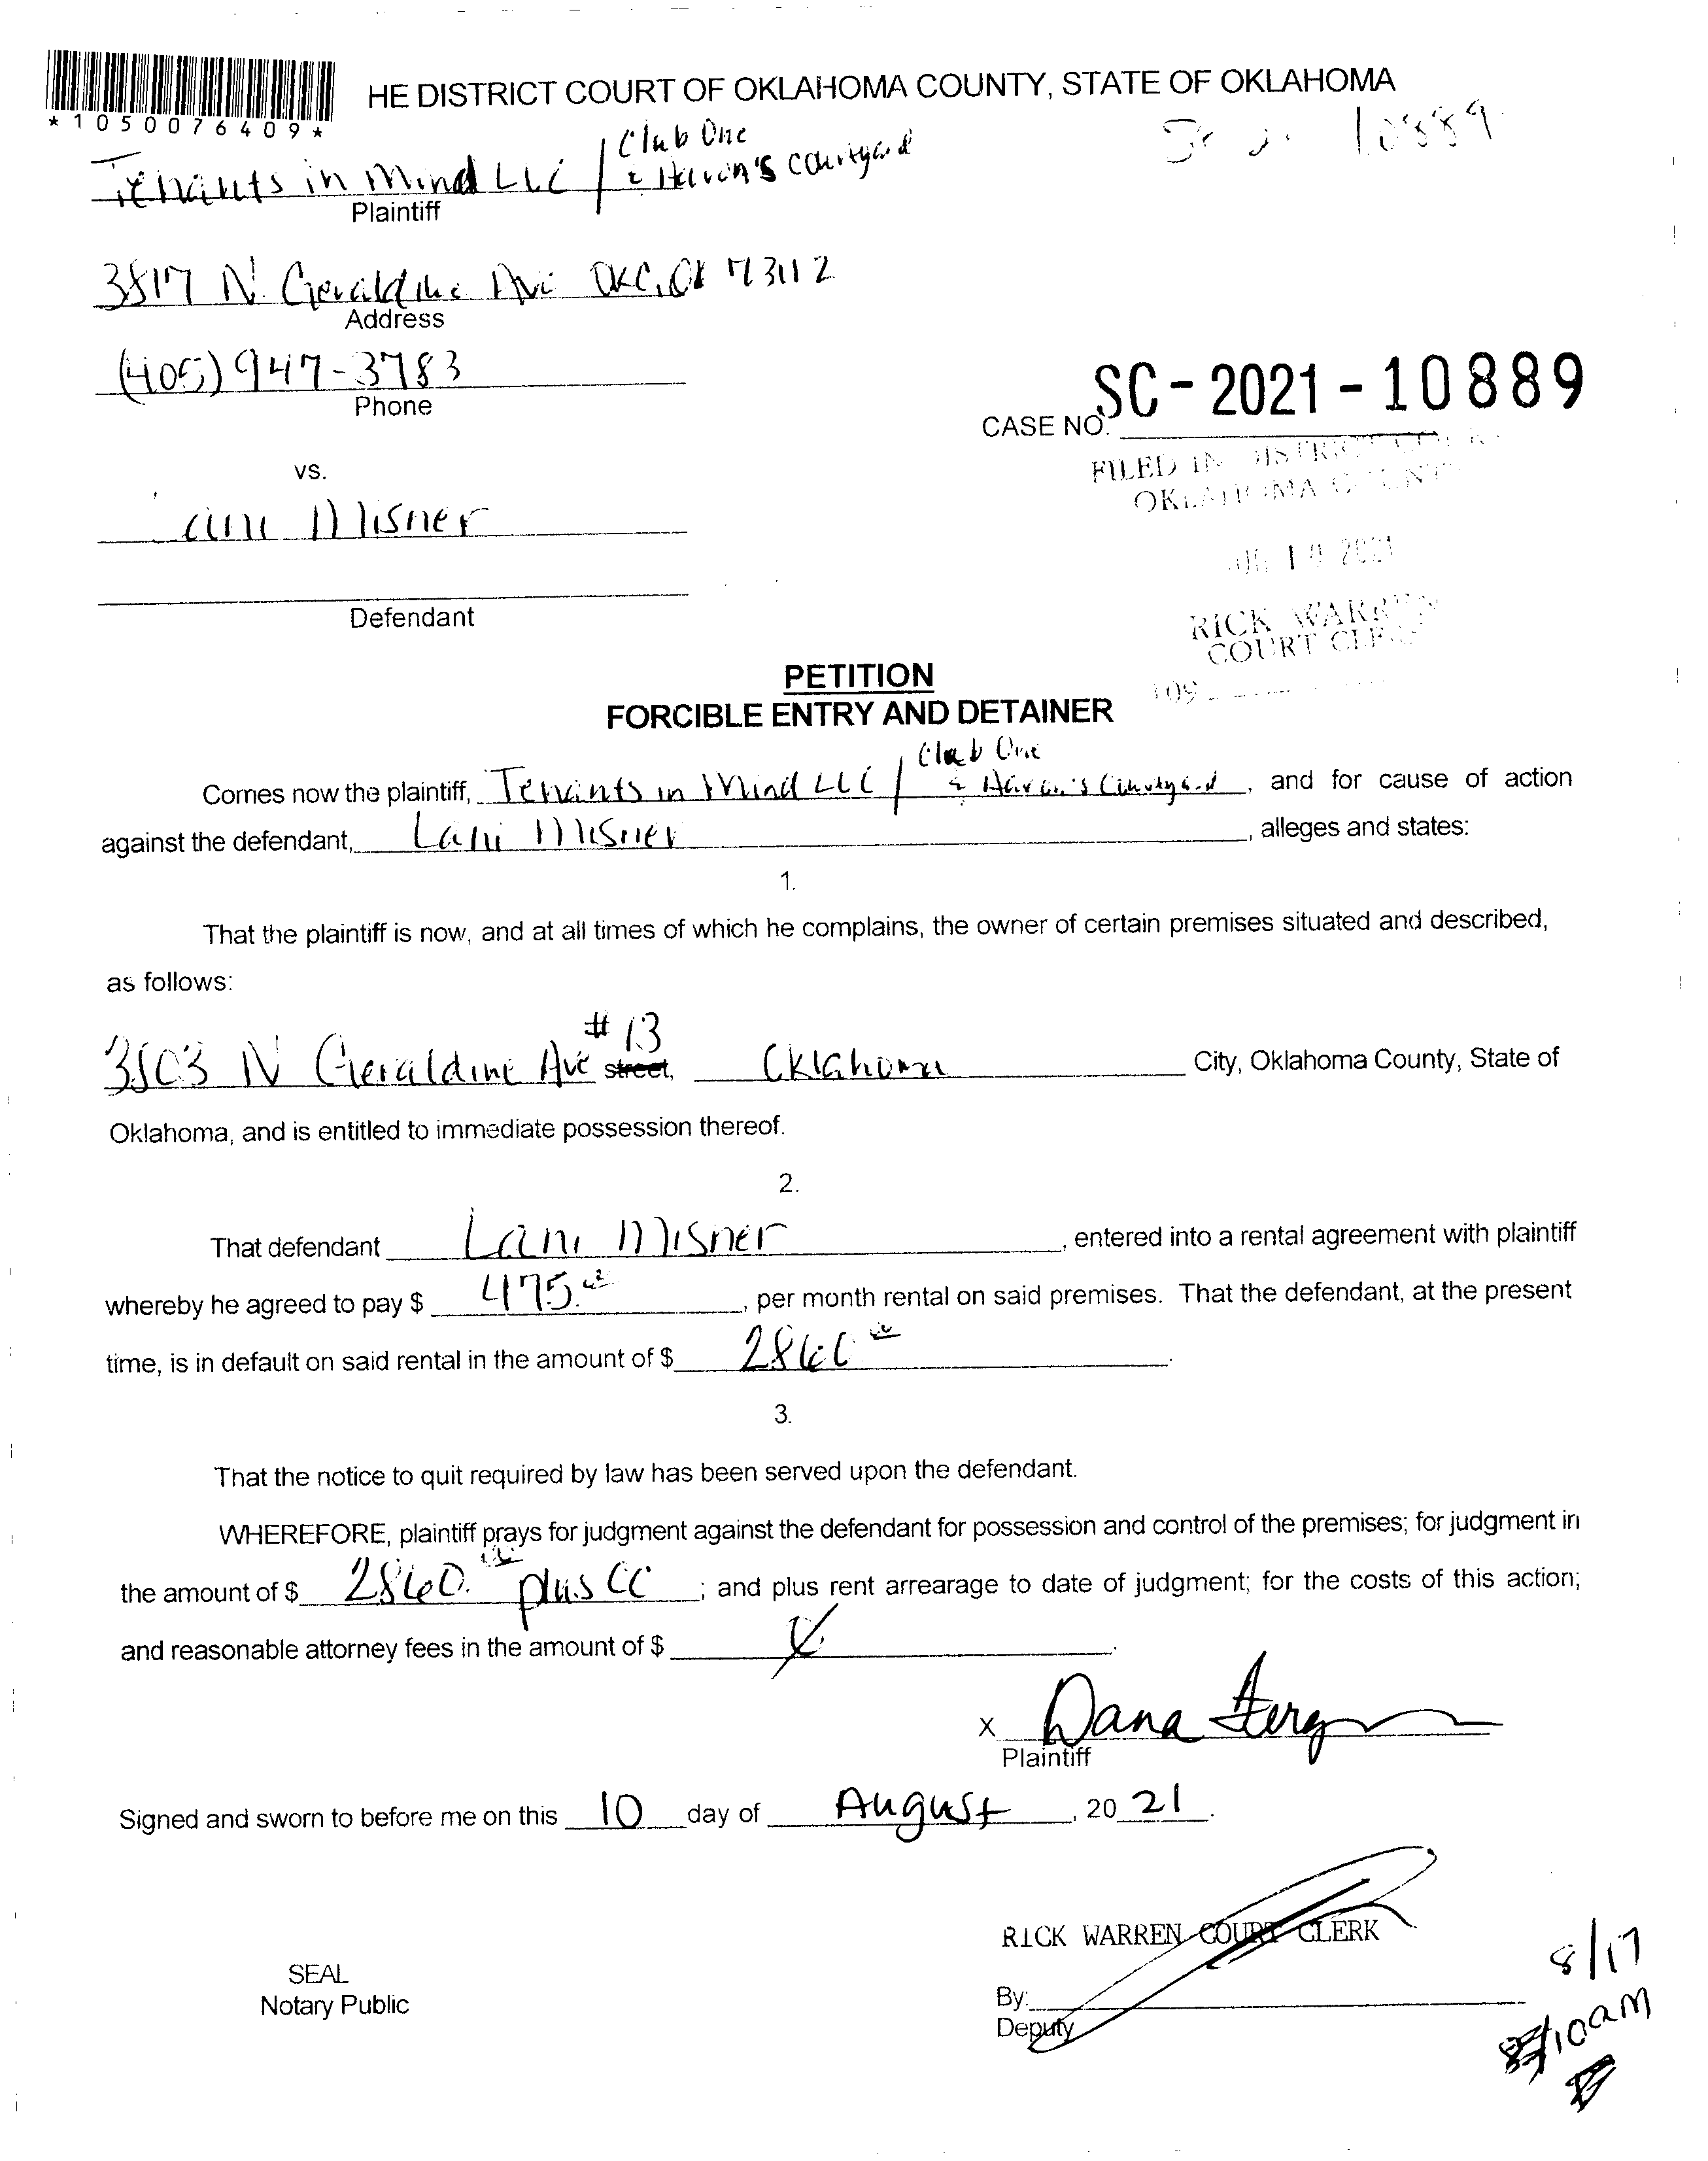 *1050076409*
HE DISTRICT COURT OF OKLAHOMA COUNTY, STATE OF OKLAHOMA
10889
Club One
Tenants in Mind LLC / & Haven's Courtyard
Plaintiff
3817 N. Geraldine Ave OKC, OK 73112
Address
(405) 947-3783
Phone
SC-2021-10889
CASE NO.
FILED IN DISTRICT COURT
OKLAHOMA COUNTY
vs.
Lani Misner
2021
RICK WARREN
COURT CLERK
Defendant
109
PETITION
FORCIBLE ENTRY AND DETAINER
Club One
Comes now the plaintiff, Tenants in Mind LLC / & Haven's Courtyard, and for cause of action
against the defendant, Lani Misner, alleges and states:
1.
That the plaintiff is now, and at all times of which he complains, the owner of certain premises situated and described,
as follows:
# 13
N Geraldine Ave street, Oklahoma City, Oklahoma County, State of
Oklahoma, and is entitled to immediate possession thereof.
2.
That defendant Lani Misner, entered into a rental agreement with plaintiff
whereby he agreed to pay $ 475.00, per month rental on said premises. That the defendant, at the present
time, is in default on said rental in the amount of $ 2860.00.
3.
That the notice to quit required by law has been served upon the defendant.
WHEREFORE, plaintiff prays for judgment against the defendant for possession and control of the premises; for judgment in
the amount of $ 2860.00 plus CC; and plus rent arrearage to date of judgment; for the costs of this action;
and reasonable attorney fees in the amount of $
X Dana
Plaintiff
Signed and sworn to before me on this 10 day of August, 20 21.
RICK WARREN COURT CLERK
SEAL
Notary Public
By:
Deputy
8/17
10am